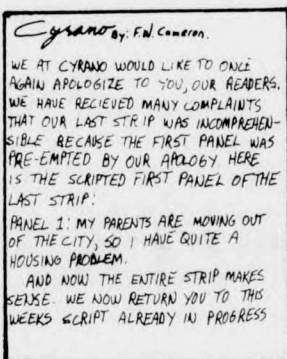 Cyrano By: F.W. Cameron.
WE AT CYRANO WOULD LIKE TO ONCE
AGAIN APOLOGIZE TO YOU, OUR READERS.
WE HAVE RECIEVED MANY COMPLAINTS
THAT OUR LAST STRIP WAS INCOMPREHEN-
SIBLE BECAUSE THE FIRST PANEL WAS
PRE-EMPTED BY OUR APOLOGY HERE
IS THE SCRIPTED FIRST PANEL OF THE
LAST STRIP:
PANEL 1: MY PARENTS ARE MOVING OUT
OF THE CITY, SO I HAVE QUITE A
HOUSING PROBLEM.
AND NOW THE ENTIRE STRIP MAKES
SENSE. WE NOW RETURN YOU TO THIS
WEEKS SCRIPT ALREADY IN PROGRESS